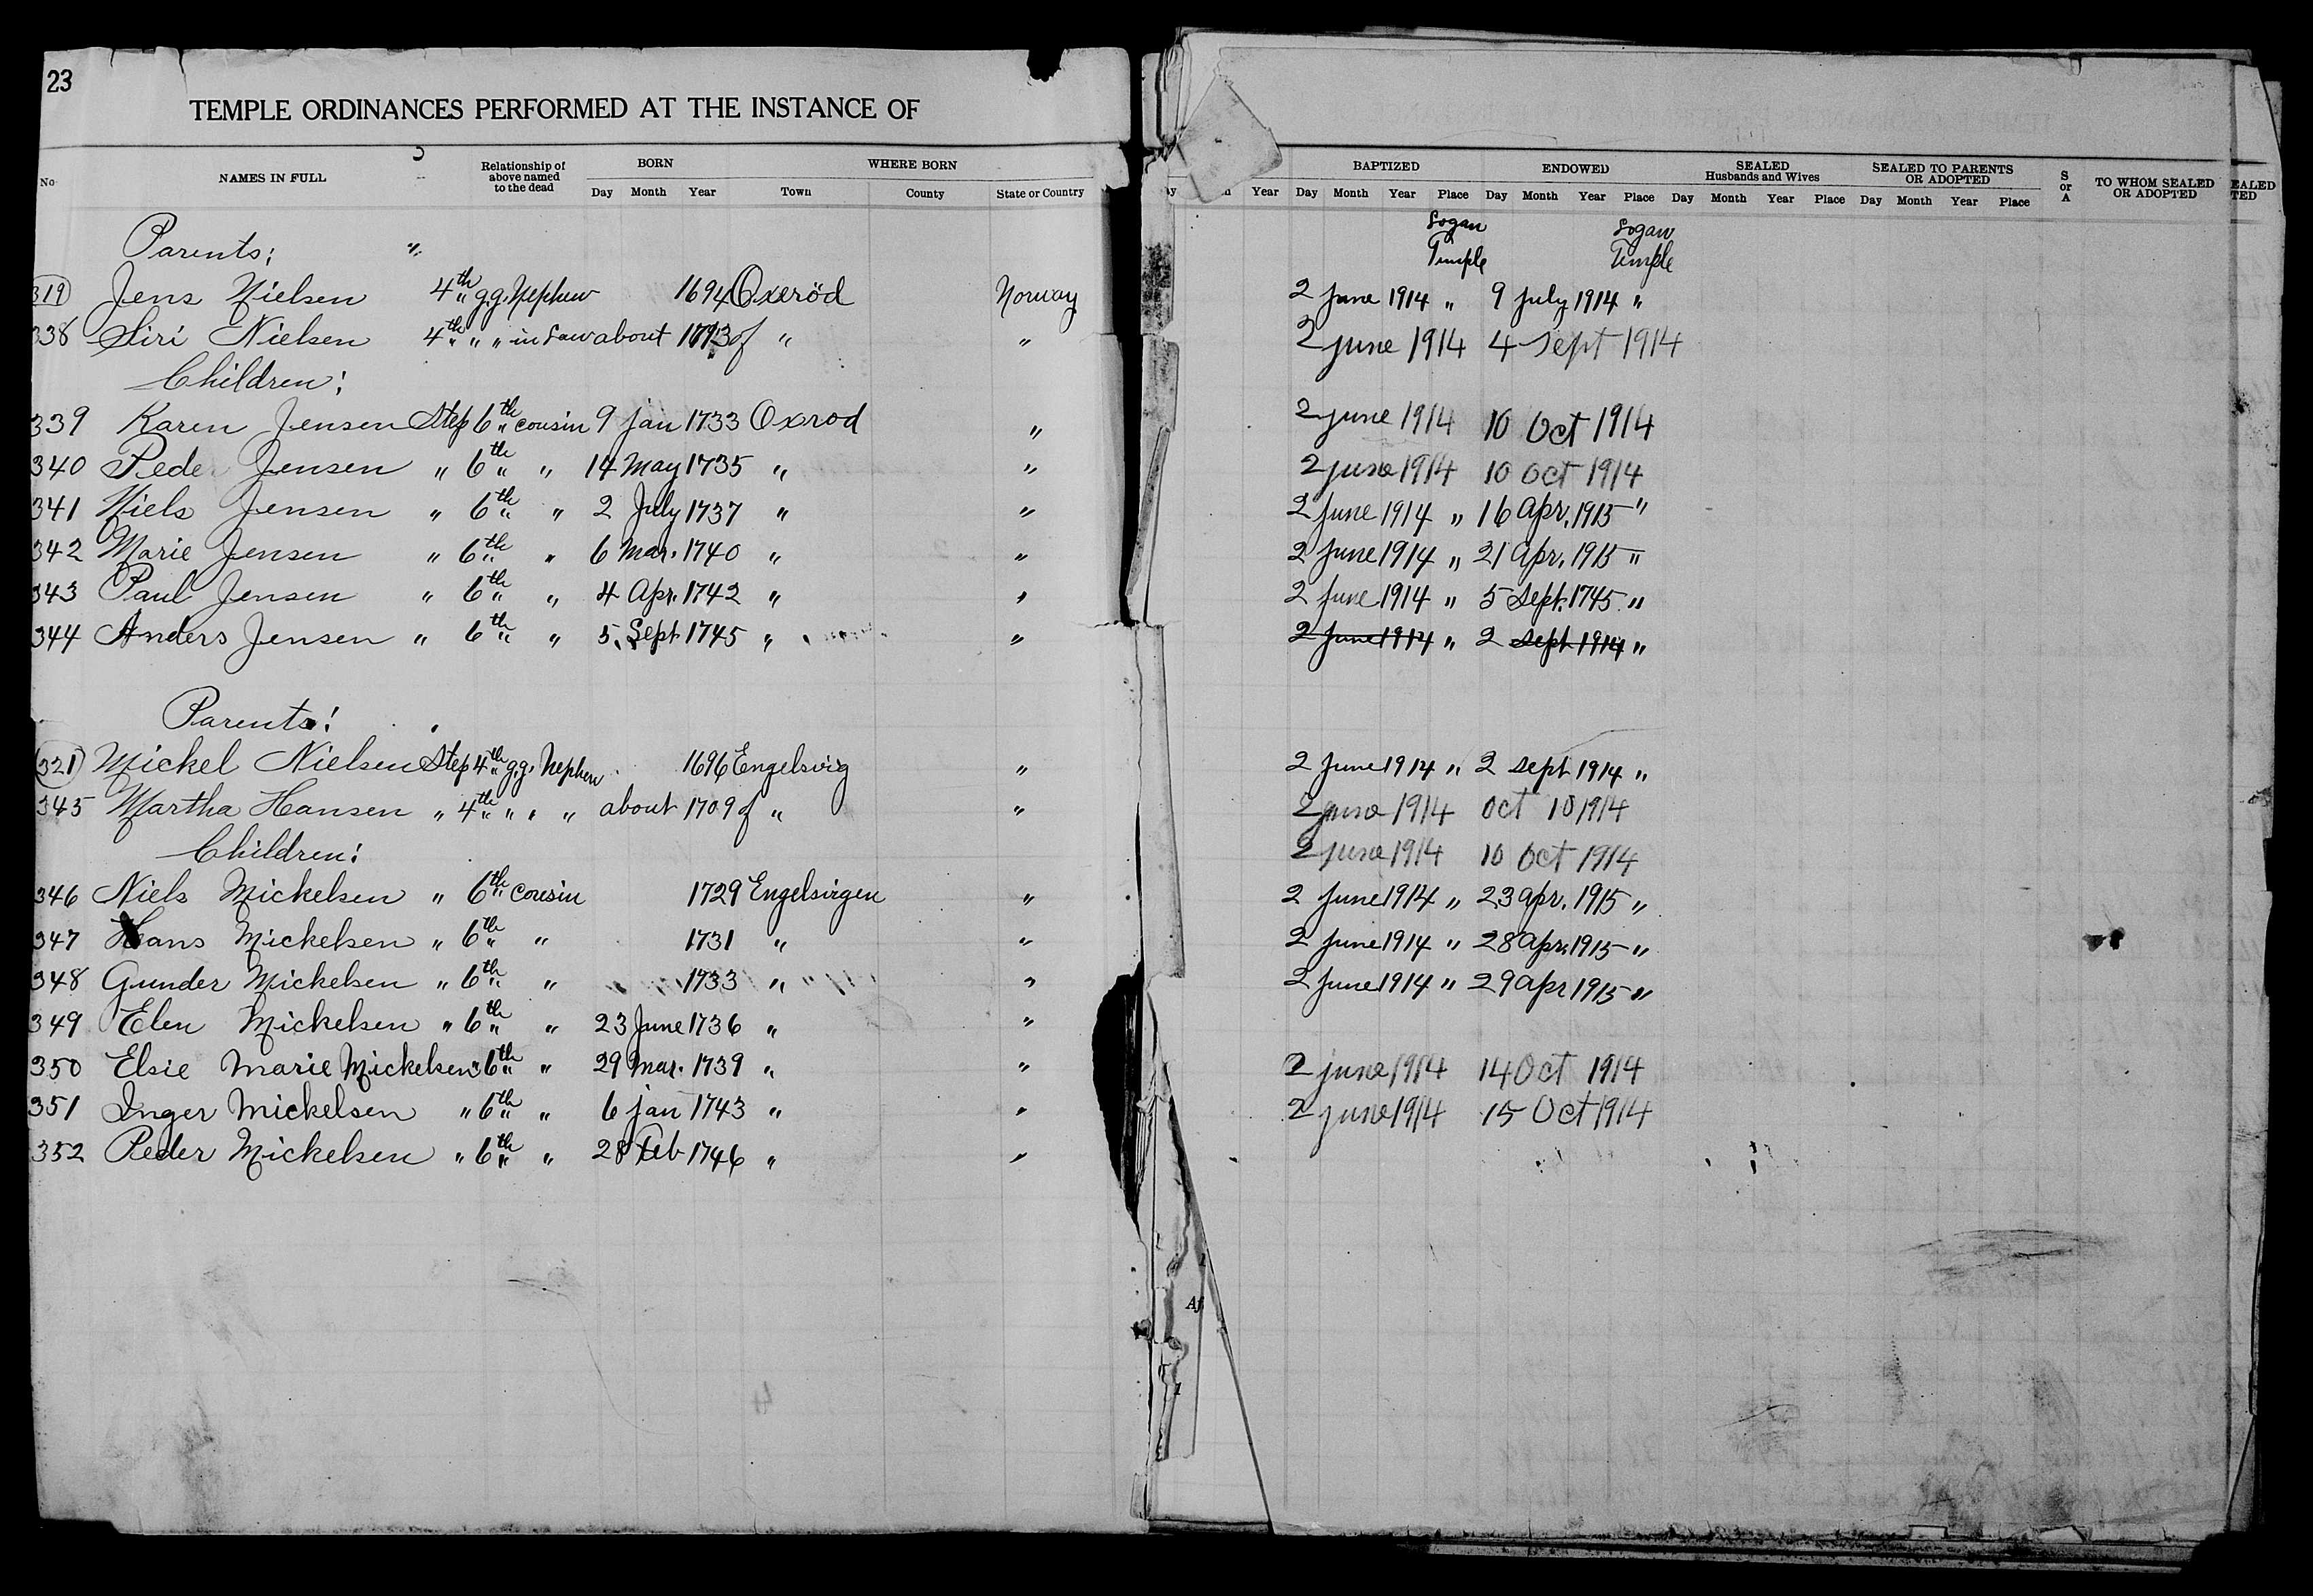 23
TEMPLE ORDINANCES PERFORMED AT THE INSTANCE OF
No. NAMES IN FULL Relationship of above named to the dead BORN Day Month Year WHERE BORN Town County State or Country Year BAPTIZED Day Month Year Place ENDOWED Day Month Year Place SEALED Husbands and Wives Day Month Year Place SEALED TO PARENTS OR ADOPTED Day Month Year Place S or A TO WHOM SEALED OR ADOPTED EALED TED
Logan Temple Logan Temple
Parents: "
319 Jens Nielsen 4th " g.g. Nephew 1694 Oxeröd Norway 2 June 1914 " 9 July 1914 "
338 Siri Nielsen 4th " " " in Law about of " " 2 June 1914 4 Sept 1914
Children:
339 Karen Jensen Step 6th " cousin 9 Jan 1733 Oxrod " 2 June 1914 10 Oct 1914
340 Peder Jensen " 6th " " 14 May 1735 " " 2 June 1914 10 Oct 1914
341 Niels Jensen " 6th " " 2 July 1737 " " 2 June 1914 " 16 Apr. 1915 "
342 Marie Jensen " 6th " " 6 Mar. 1740 " " 2 June 1914 " 21 Apr. 1915 "
343 Paul Jensen " 6th " " 4 Apr. 1742 " " 2 June 1914 " 5 Sept. 1745 "
344 Anders Jensen " 6th " " 5 Sept 1745 " " 2 June 1914 " 2 Sept 1914 "
Parents:
321 Mickel Nielsen Step 4th " g.g. Nephew 1696 Engelsvig " 2 June 1914 " 2 Sept 1914 "
345 Martha Hansen " 4th " " " " about 1709 of " " 2 June 1914 Oct 10 1914
Children: 2 June 1914 10 Oct 1914
346 Niels Mickelsen " 6th " cousin 1729 Engelsvigen " 2 June 1914 " 23 Apr. 1915 "
347 Hans Mickelsen " 6th " " 1731 " " 2 June 1914 " 28 Apr. 1915 "
348 Gunder Mickelsen " 6th " " 1733 " " 2 June 1914 " 29 Apr 1915 "
349 Elen Mickelsen " 6th " " 23 June 1736 " "
350 Elsie Marie Mickelsen " 6th " " 29 Mar. 1739 " " 2 June 1914 14 Oct 1914
351 Inger Mickelsen " 6th " " 6 Jan 1743 " " 2 June 1914 15 Oct 1914
352 Peder Mickelsen " 6th " " 28 Feb 1746 " "